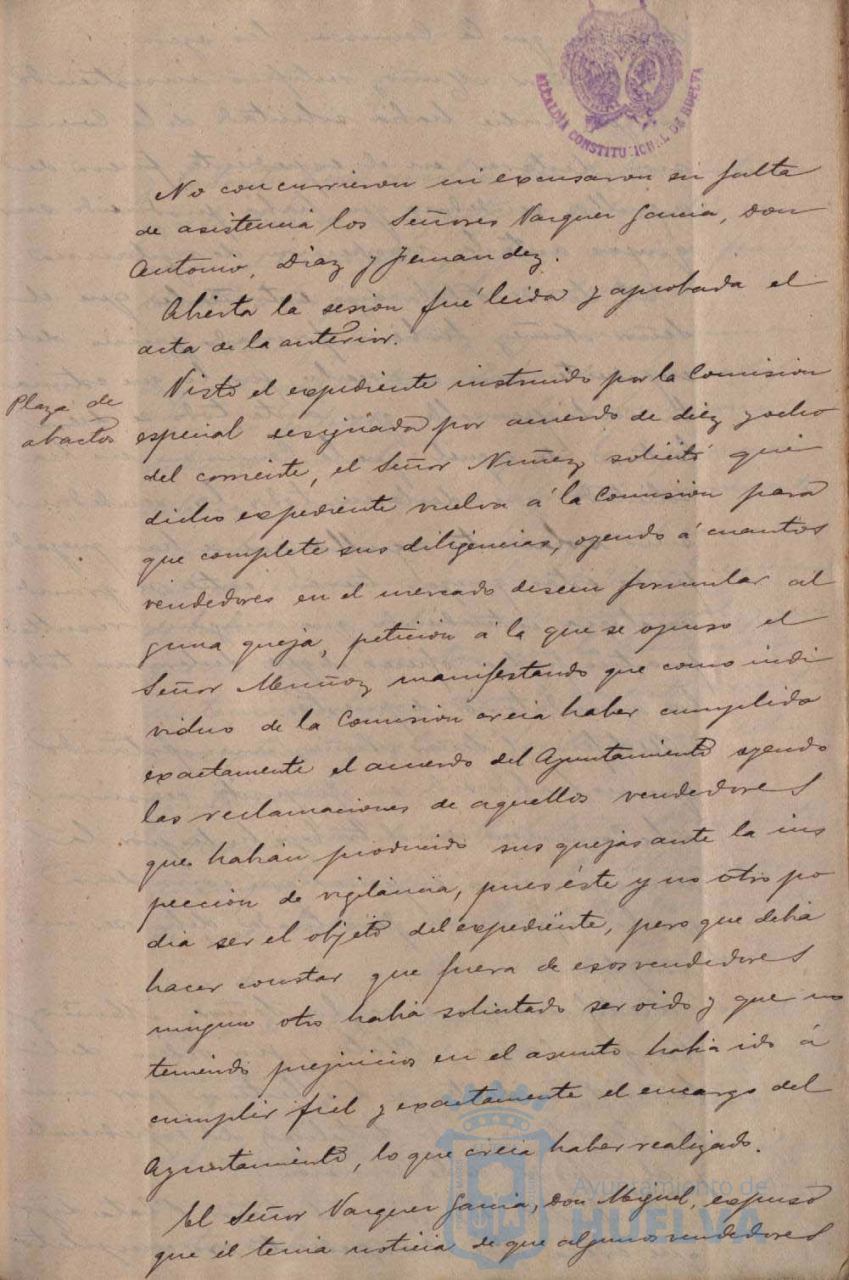 ALCALDIA CONSTITUCIONAL DE HUELVA
No concurrieron ni excusaron su falta
de asistencia los Señores Vazquez Garcia, Don
Antonio, Diaz y Fernandez.
Abierta la sesion fué leida y aprobada el
acta de la anterior.
Plaza de
abastos
Visto el expediente instruido por la Comision
especial designada por acuerdo de diez y ocho
del corriente, el Señor Nuñez solicitó que
dicho expediente vuelva á la Comision para
que complete sus diligencias, oyendo á cuantos
vendedores en el mercado deseen formular al
guna queja, petición á la que se opuso el
Señor Muñoz manifestando que como indi
viduo de la Comision creia haber cumplido
exactamente el acuerdo del Ayuntamiento oyendo
las reclamaciones de aquellos vendedores
que habian producido sus quejas ante la ins
pección de vigilancia, pues éste y no otro po
dia ser el objeto del expediente, pero que debia
hacer constar que fuera de esos vendedores
ninguno otro habia solicitado ser oido y que no
teniendo prejuicios en el asunto habia ido á
cumplir fiel y exactamente el encargo del
Ayuntamiento, lo que creia haber realizado.
El Señor Vazquez Garcia, Don Miguel, expuso
que él tenia noticia de que algunos vendedores
Ayuntamiento de
HUELVA